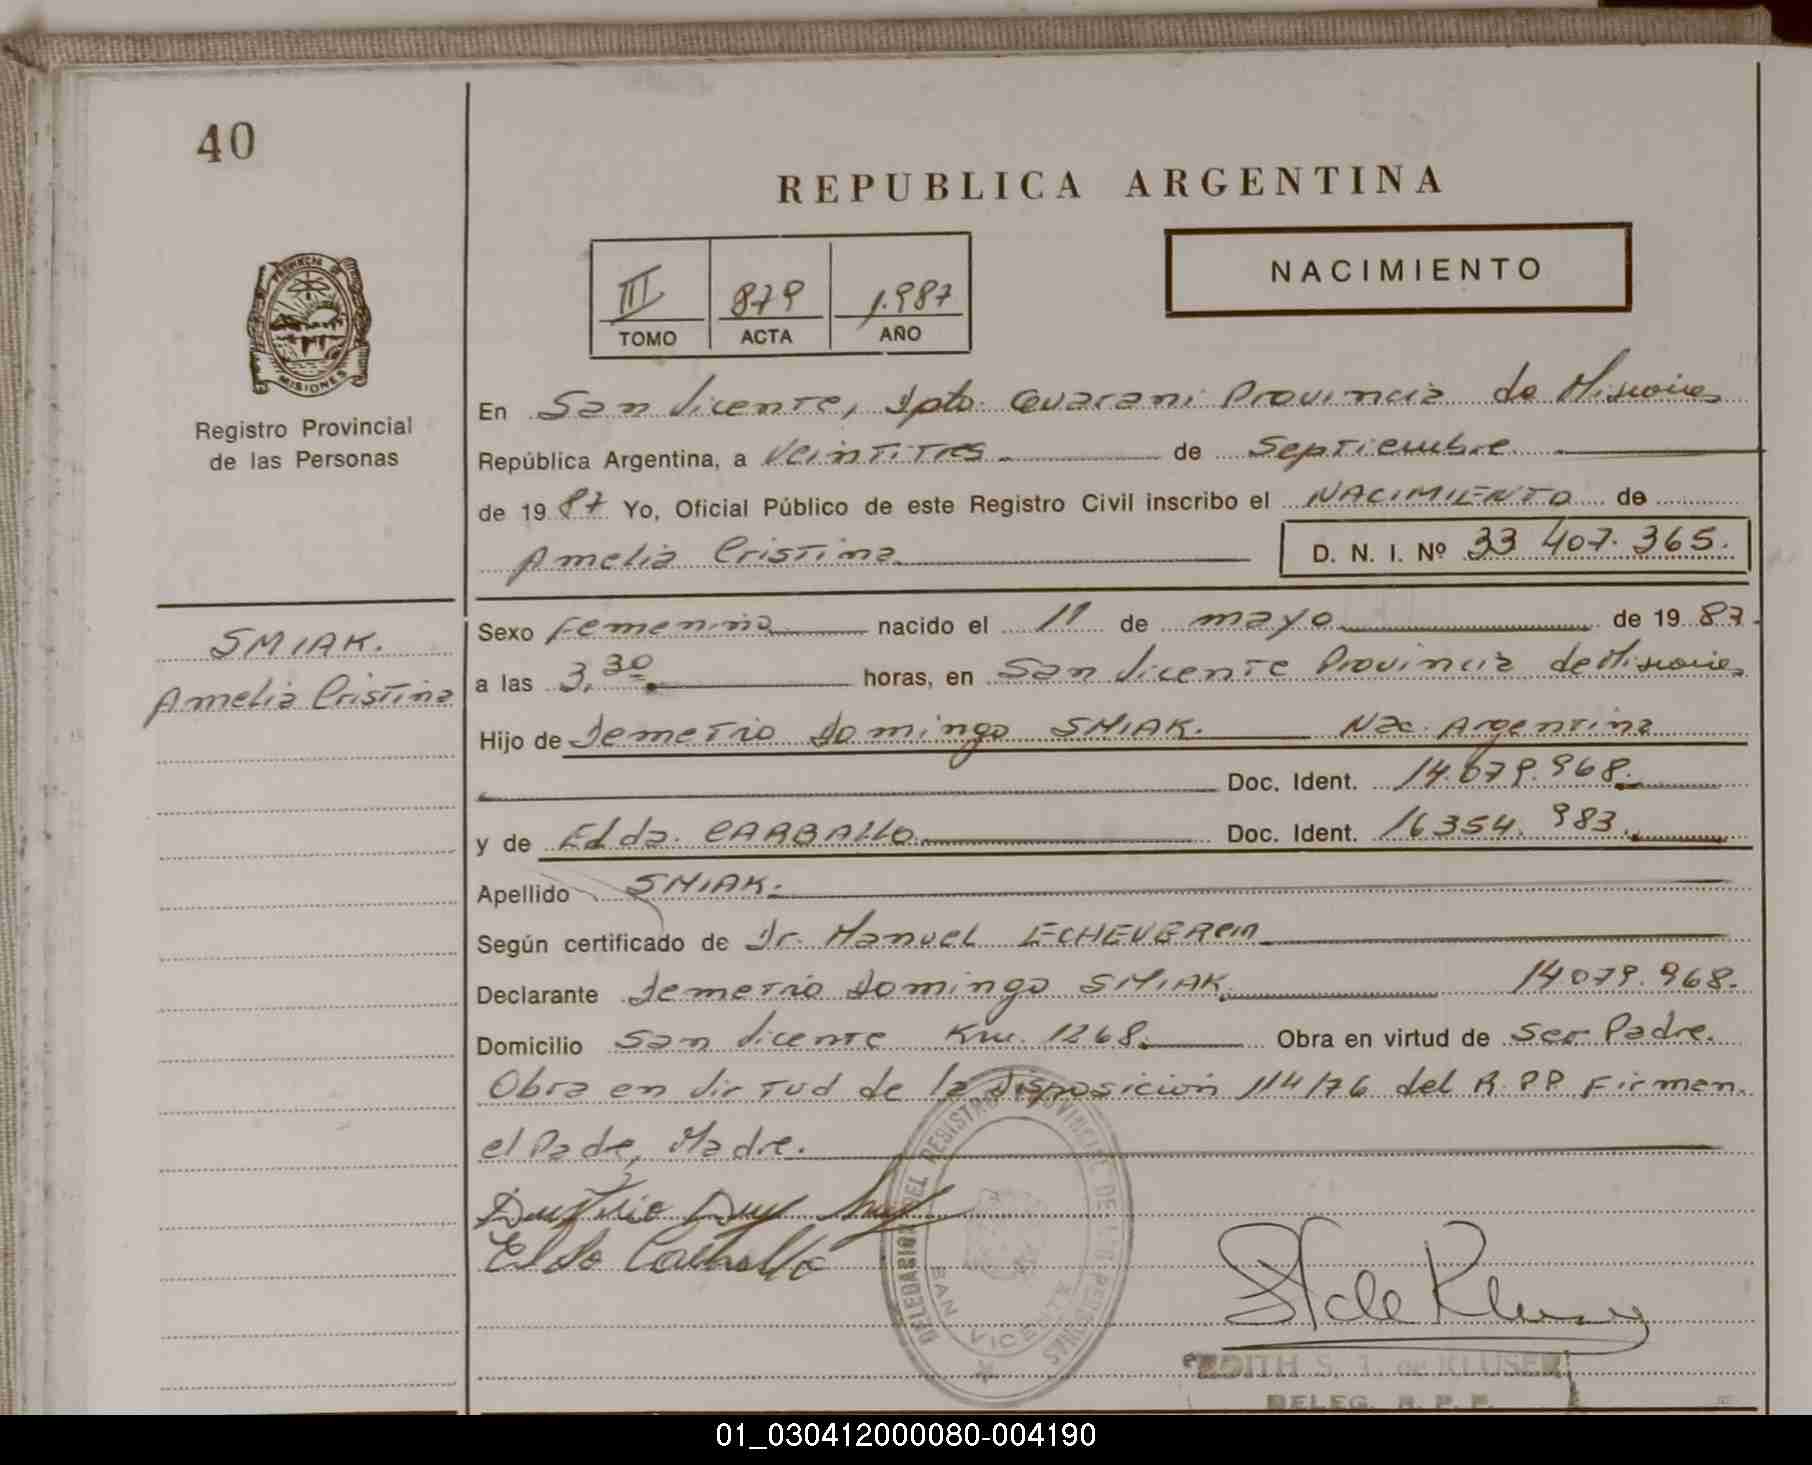 40
REPUBLICA ARGENTINA
NACIMIENTO
III 879 1.987
TOMO ACTA AÑO
PROVINCIA DE
MISIONES
Registro Provincial
de las Personas
En San Vicente, Dpto. Guarani Provincia de Misiones
República Argentina, a Veintitres de Septiembre
de 1987 Yo, Oficial Público de este Registro Civil inscribo el NACIMIENTO de
Amelia Cristina
D. N. I. Nº 33 407.365.
SMIAK.
Amelia Cristina
Sexo Femenino nacido el 11 de mayo de 1987.
a las 3,30 horas, en San Vicente Provincia de Misiones
Hijo de Demetrio Domingo SMIAK. Nac. Argentina
Doc. Ident. 14.079.968.
y de Elda CARBALLO Doc. Ident. 16354.983.
Apellido SMIAK.
Según certificado de Dr. Manuel
Declarante Demetrio Domingo SMIAK. 14079.968.
Domicilio San Vicente Km. 1268. Obra en virtud de Ser Padre.
Obra en virtud de la disposición 114/76 del R.P.P. Firman
el Padre, Madre.
DELEGACION DEL REGISTRO PROVINCIAL DE LAS PERSONAS
SAN VICENTE
EDITH S. J. de KLUSER
DELEG. R. P. P.
01_030412000080-004190